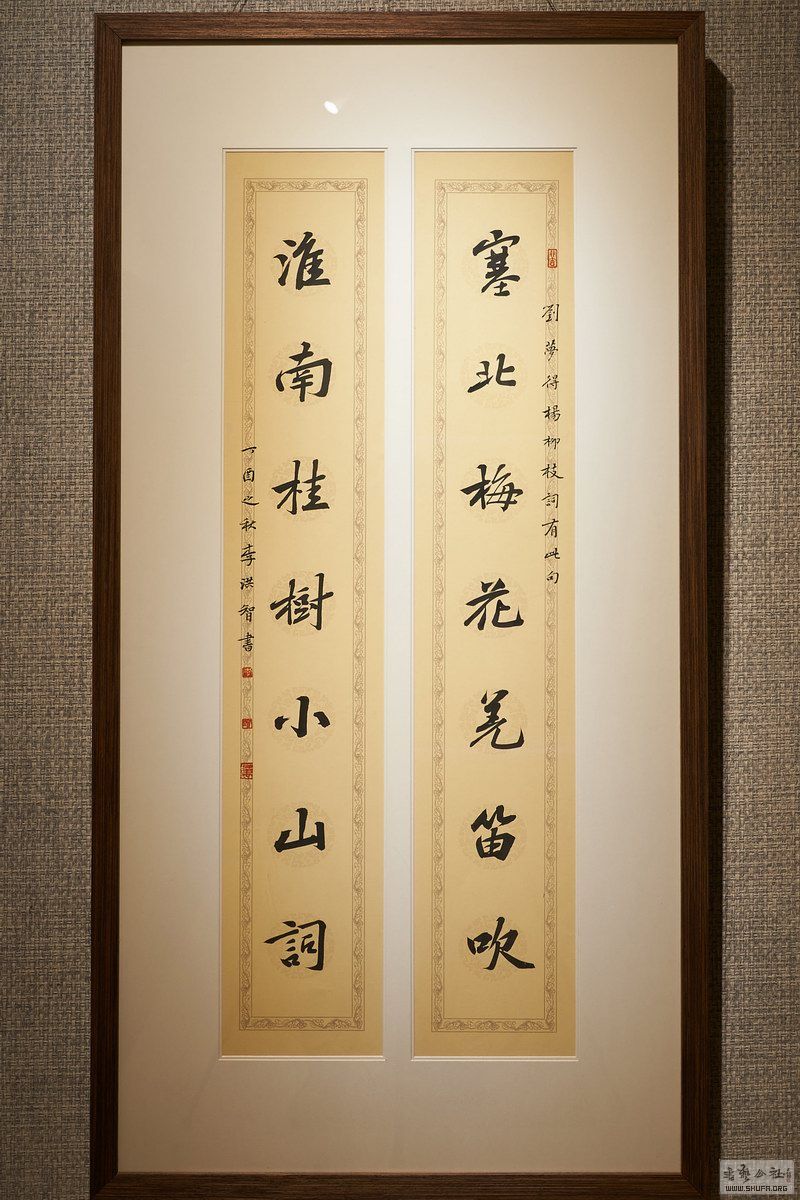 劉夢得楊柳枝詞有此句
塞北梅花羌笛吹
淮南桂樹小山詞
丁酉之秋李洪智書
WWW.SHUFA.ORG